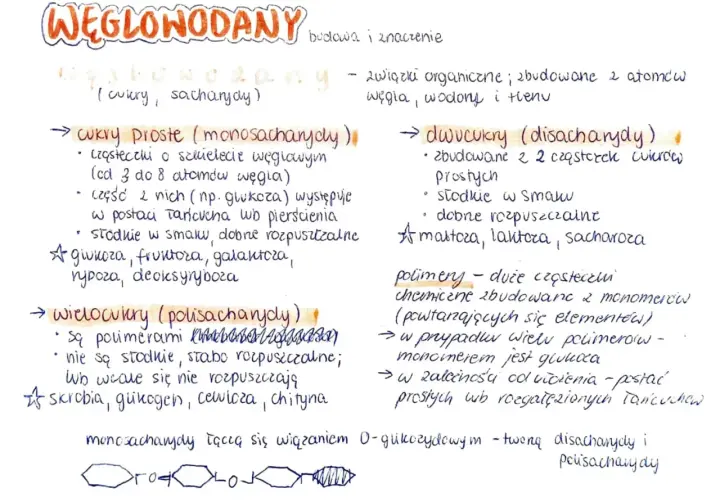 WĘGLOWODANY budowa i znaczenie
węglowodany - związki organiczne; zbudowane z atomów
(cukry, sacharydy) węgla, wodoru i tlenu
→ cukry proste (monosacharydy)
• cząsteczki o szkielecie węglowym
(od 3 do 8 atomów węgla)
• część z nich (np. glukoza) występuje
w postaci łańcucha lub pierścienia
• słodkie w smaku, dobrze rozpuszczalne
☆ glukoza, fruktoza, galaktoza,
ryboza, deoksyryboza
→ wielocukry (polisacharydy)
• są polimerami
• nie są słodkie, słabo rozpuszczalne;
lub wcale się nie rozpuszczają
☆ skrobia, glikogen, celuloza, chityna
→ dwucukry (disacharydy)
• zbudowane z 2 cząsteczek cukrów
prostych
• słodkie w smaku
• dobrze rozpuszczalne
☆ maltoza, laktoza, sacharoza
polimery - duże cząsteczki
chemiczne zbudowane z monomerów
(powtarzających się elementów)
→ w przypadku wielu polimerów -
monomerem jest glukoza
→ w zależności od ułożenia - postać
prostych lub rozgałęzionych łańcuchów
monosacharydy łączą się wiązaniem O-glikozydowym - tworzą disacharydy i
polisacharydy
O O